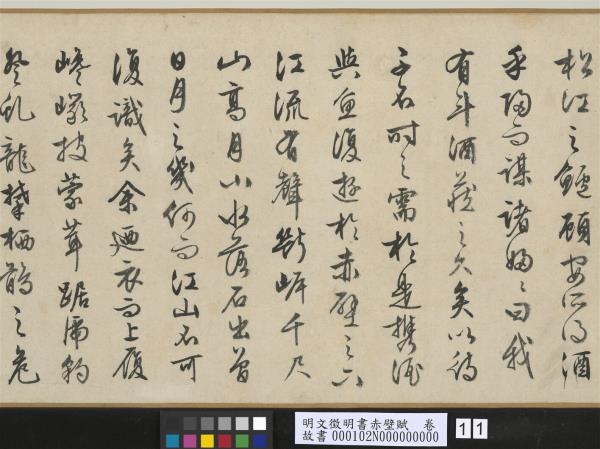 松江之鱸顧安所得酒
乎歸而謀諸婦〻曰我
有斗酒藏之久矣以待
子不時之需於是攜酒
與魚復遊於赤壁之下
江流有聲斷岸千尺
山高月小水落石出曾
日月之幾何而江山不可
復識矣余廼衣而上履
巉巖披蒙茸踞虎豹
登虬龍攀栖鶻之危
明文徵明書赤壁賦　卷
故書 000102N000000000
11